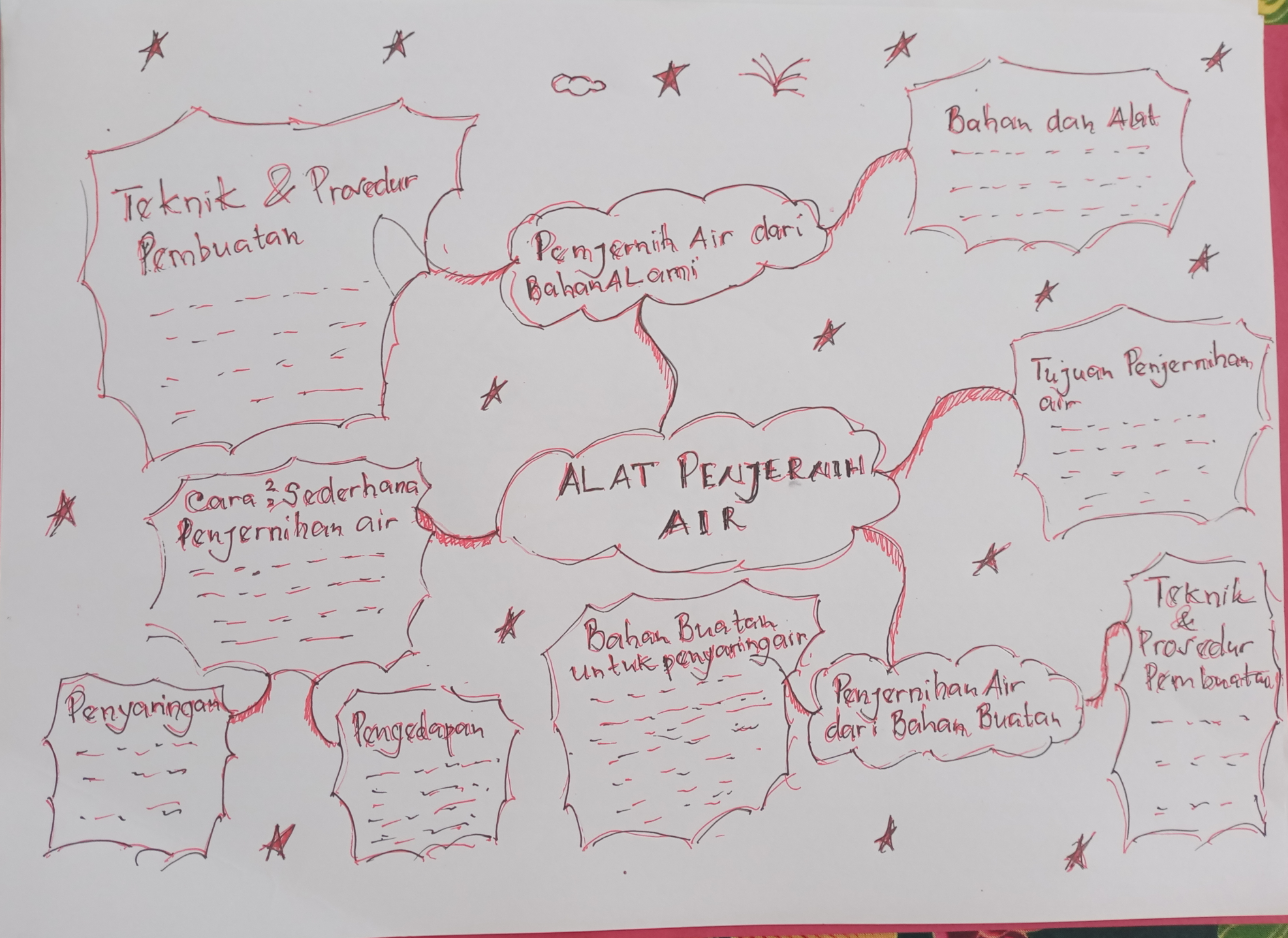 Teknik & Prosedur
Pembuatan
Bahan dan Alat
Penjernih Air dari
Bahan ALami
Tujuan Penjernihan
air
ALAT PENJERNIH
AIR
Cara 2 Sederhana
Penjernihan air
Penyaringan
Pengedapan
Bahan Buatan
untuk penyaring air
Penjernihan Air
dari Bahan Buatan
Teknik
&
Prosedur
Pembuatan